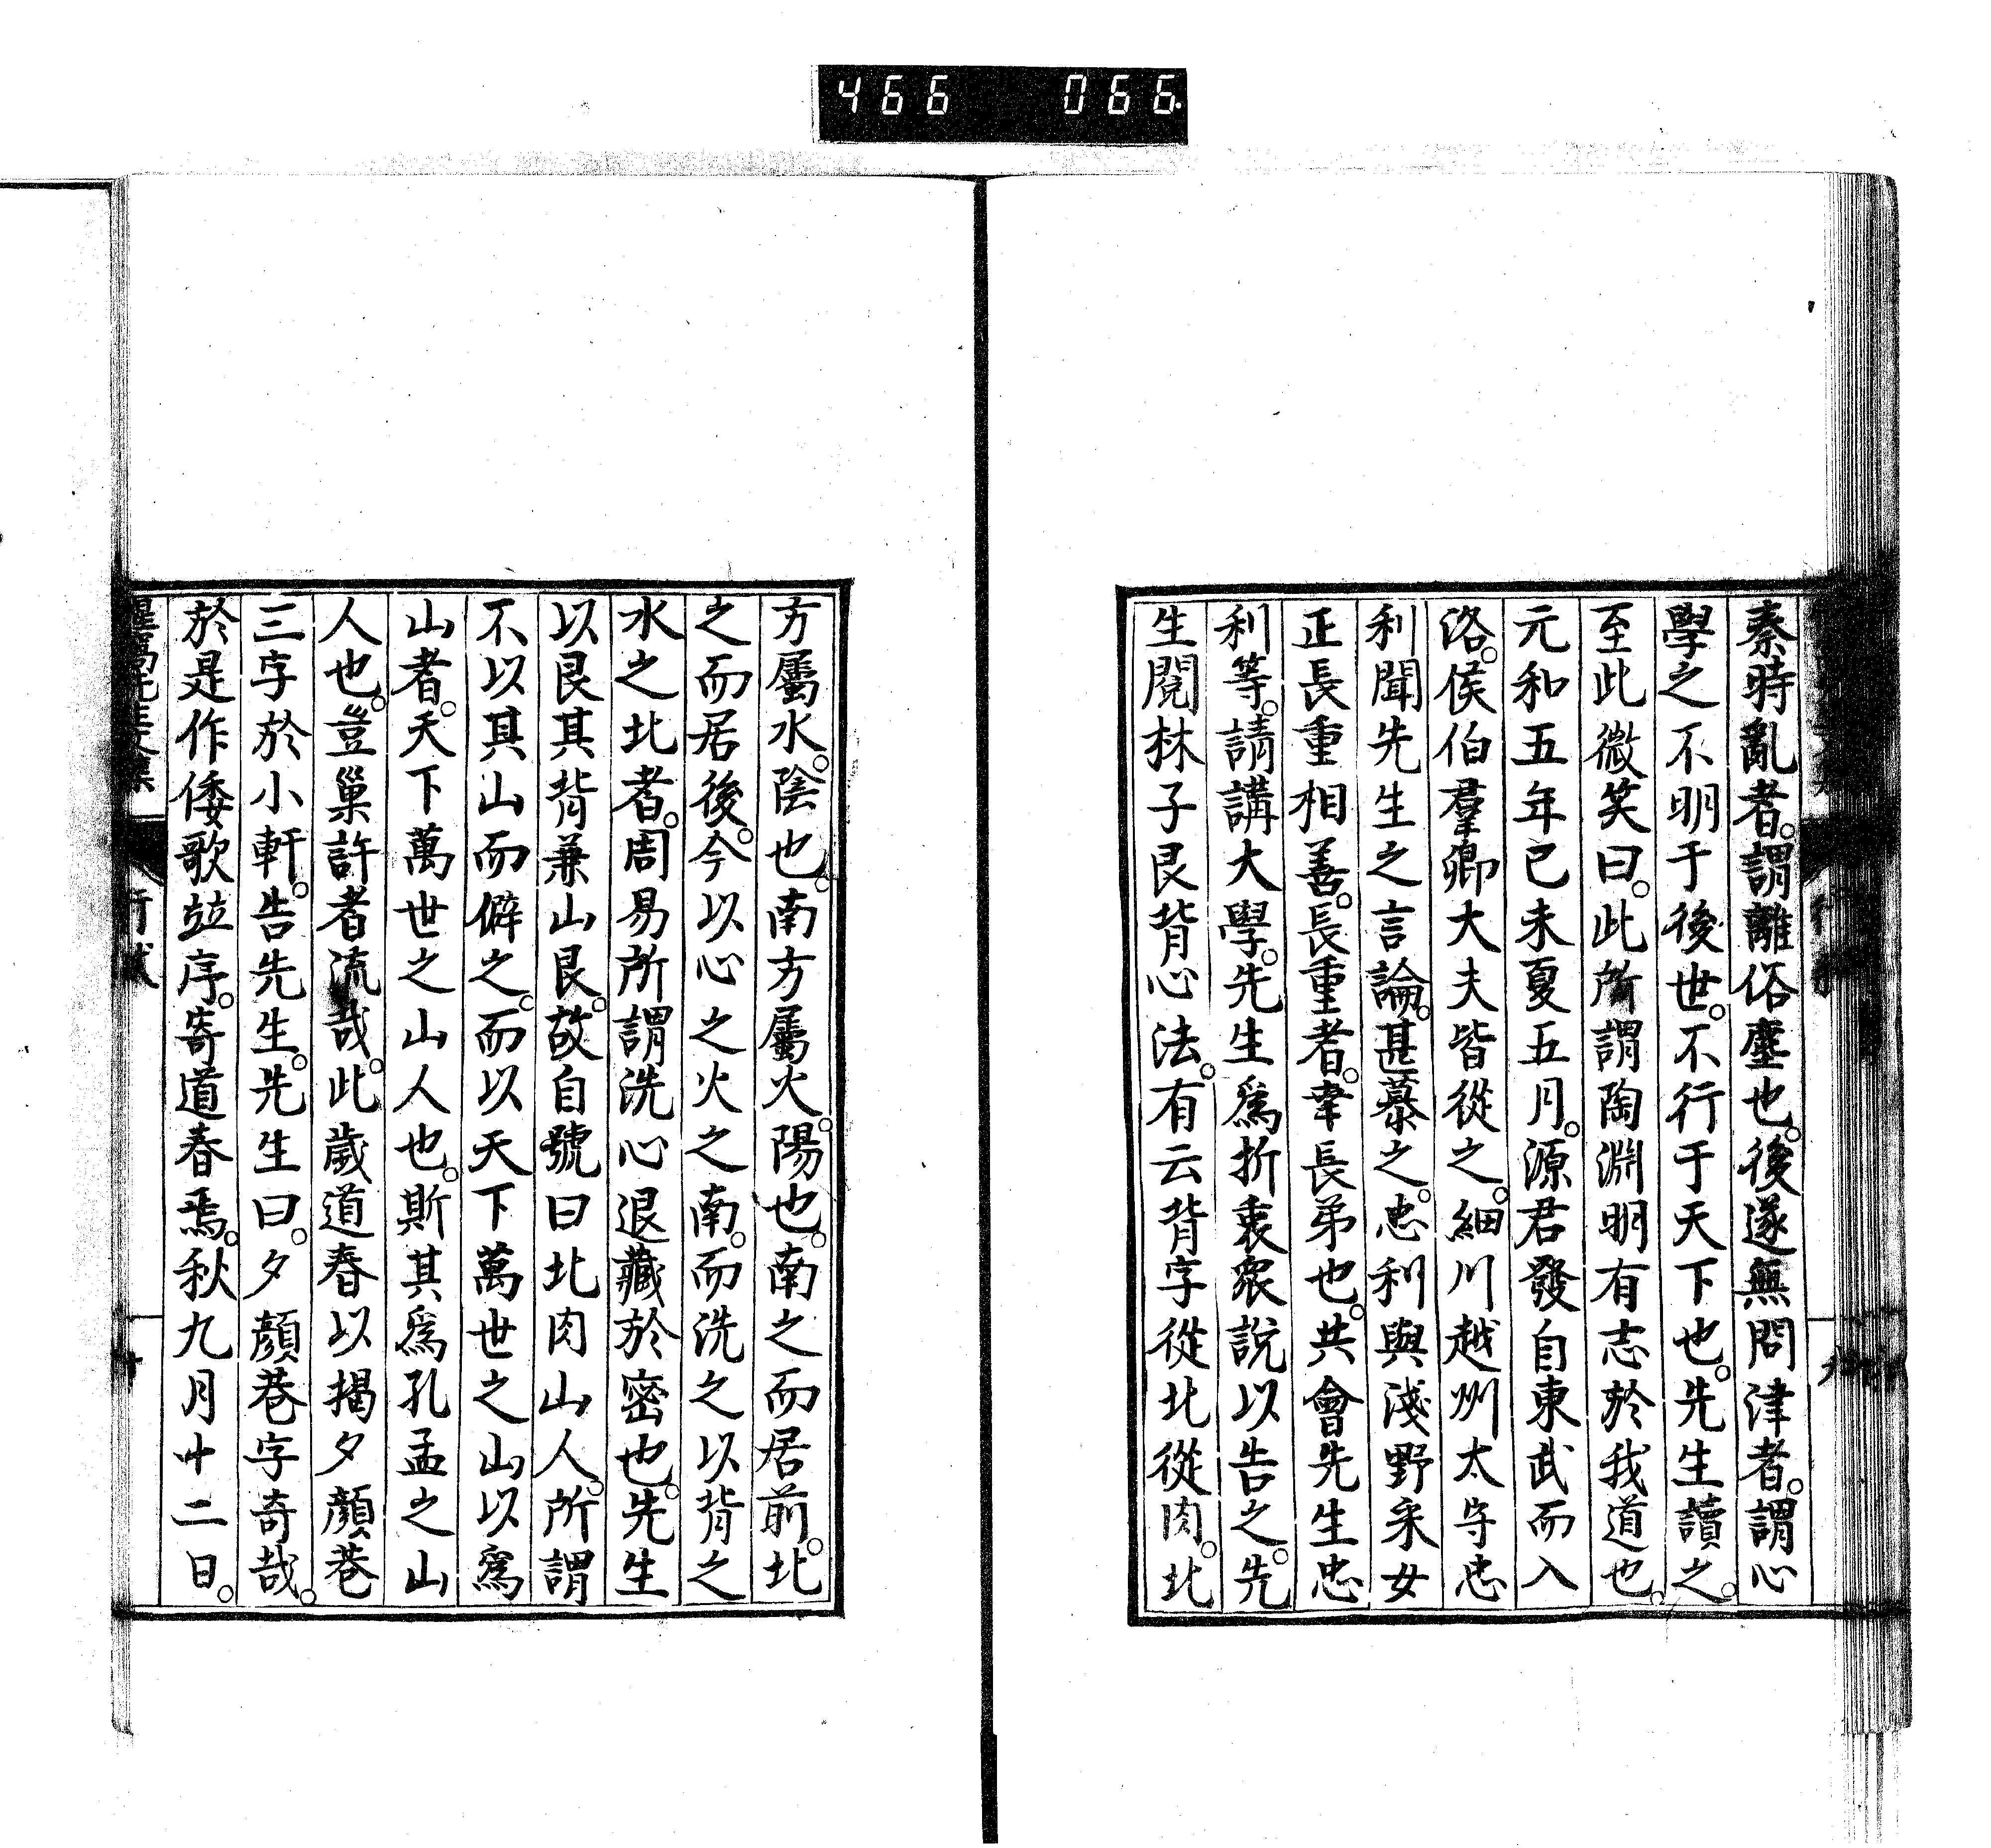 466 066
秦時亂者。謂離俗塵也。後遂無問津者。謂心
學之不明于後世。不行于天下也。先生讀之。
至此微笑曰。此所謂陶淵明有志於我道也。
元和五年己未夏五月。源君發自東武而入
洛。侯伯羣卿大夫皆從之。細川越州太守忠
利聞先生之言論。甚慕之。忠利與淺野采女
正長重相善。長重者。幸長弟也。共會先生忠
利等。請講大學。先生爲折衷衆說以告之。先
生閱林子艮背心法。有云背字從北從肉。北
方屬水。陰也。南方屬火。陽也。南之而居前。北
之而居後。今以心之火之南。而洗之以背之
水之北者。周易所謂洗心退藏於密也。先生
以艮其背兼山艮。故自號曰北肉山人。所謂
不以其山而僻之。而以天下萬世之山以爲
山者。天下萬世之山人也。斯其爲孔孟之山
人也。豈巢許者流哉。此歲道春以揭夕顏巷
三字於小軒。告先生。先生曰。夕顏巷字奇哉。
於是作倭歌竝序。寄道春焉。秋九月十二日。